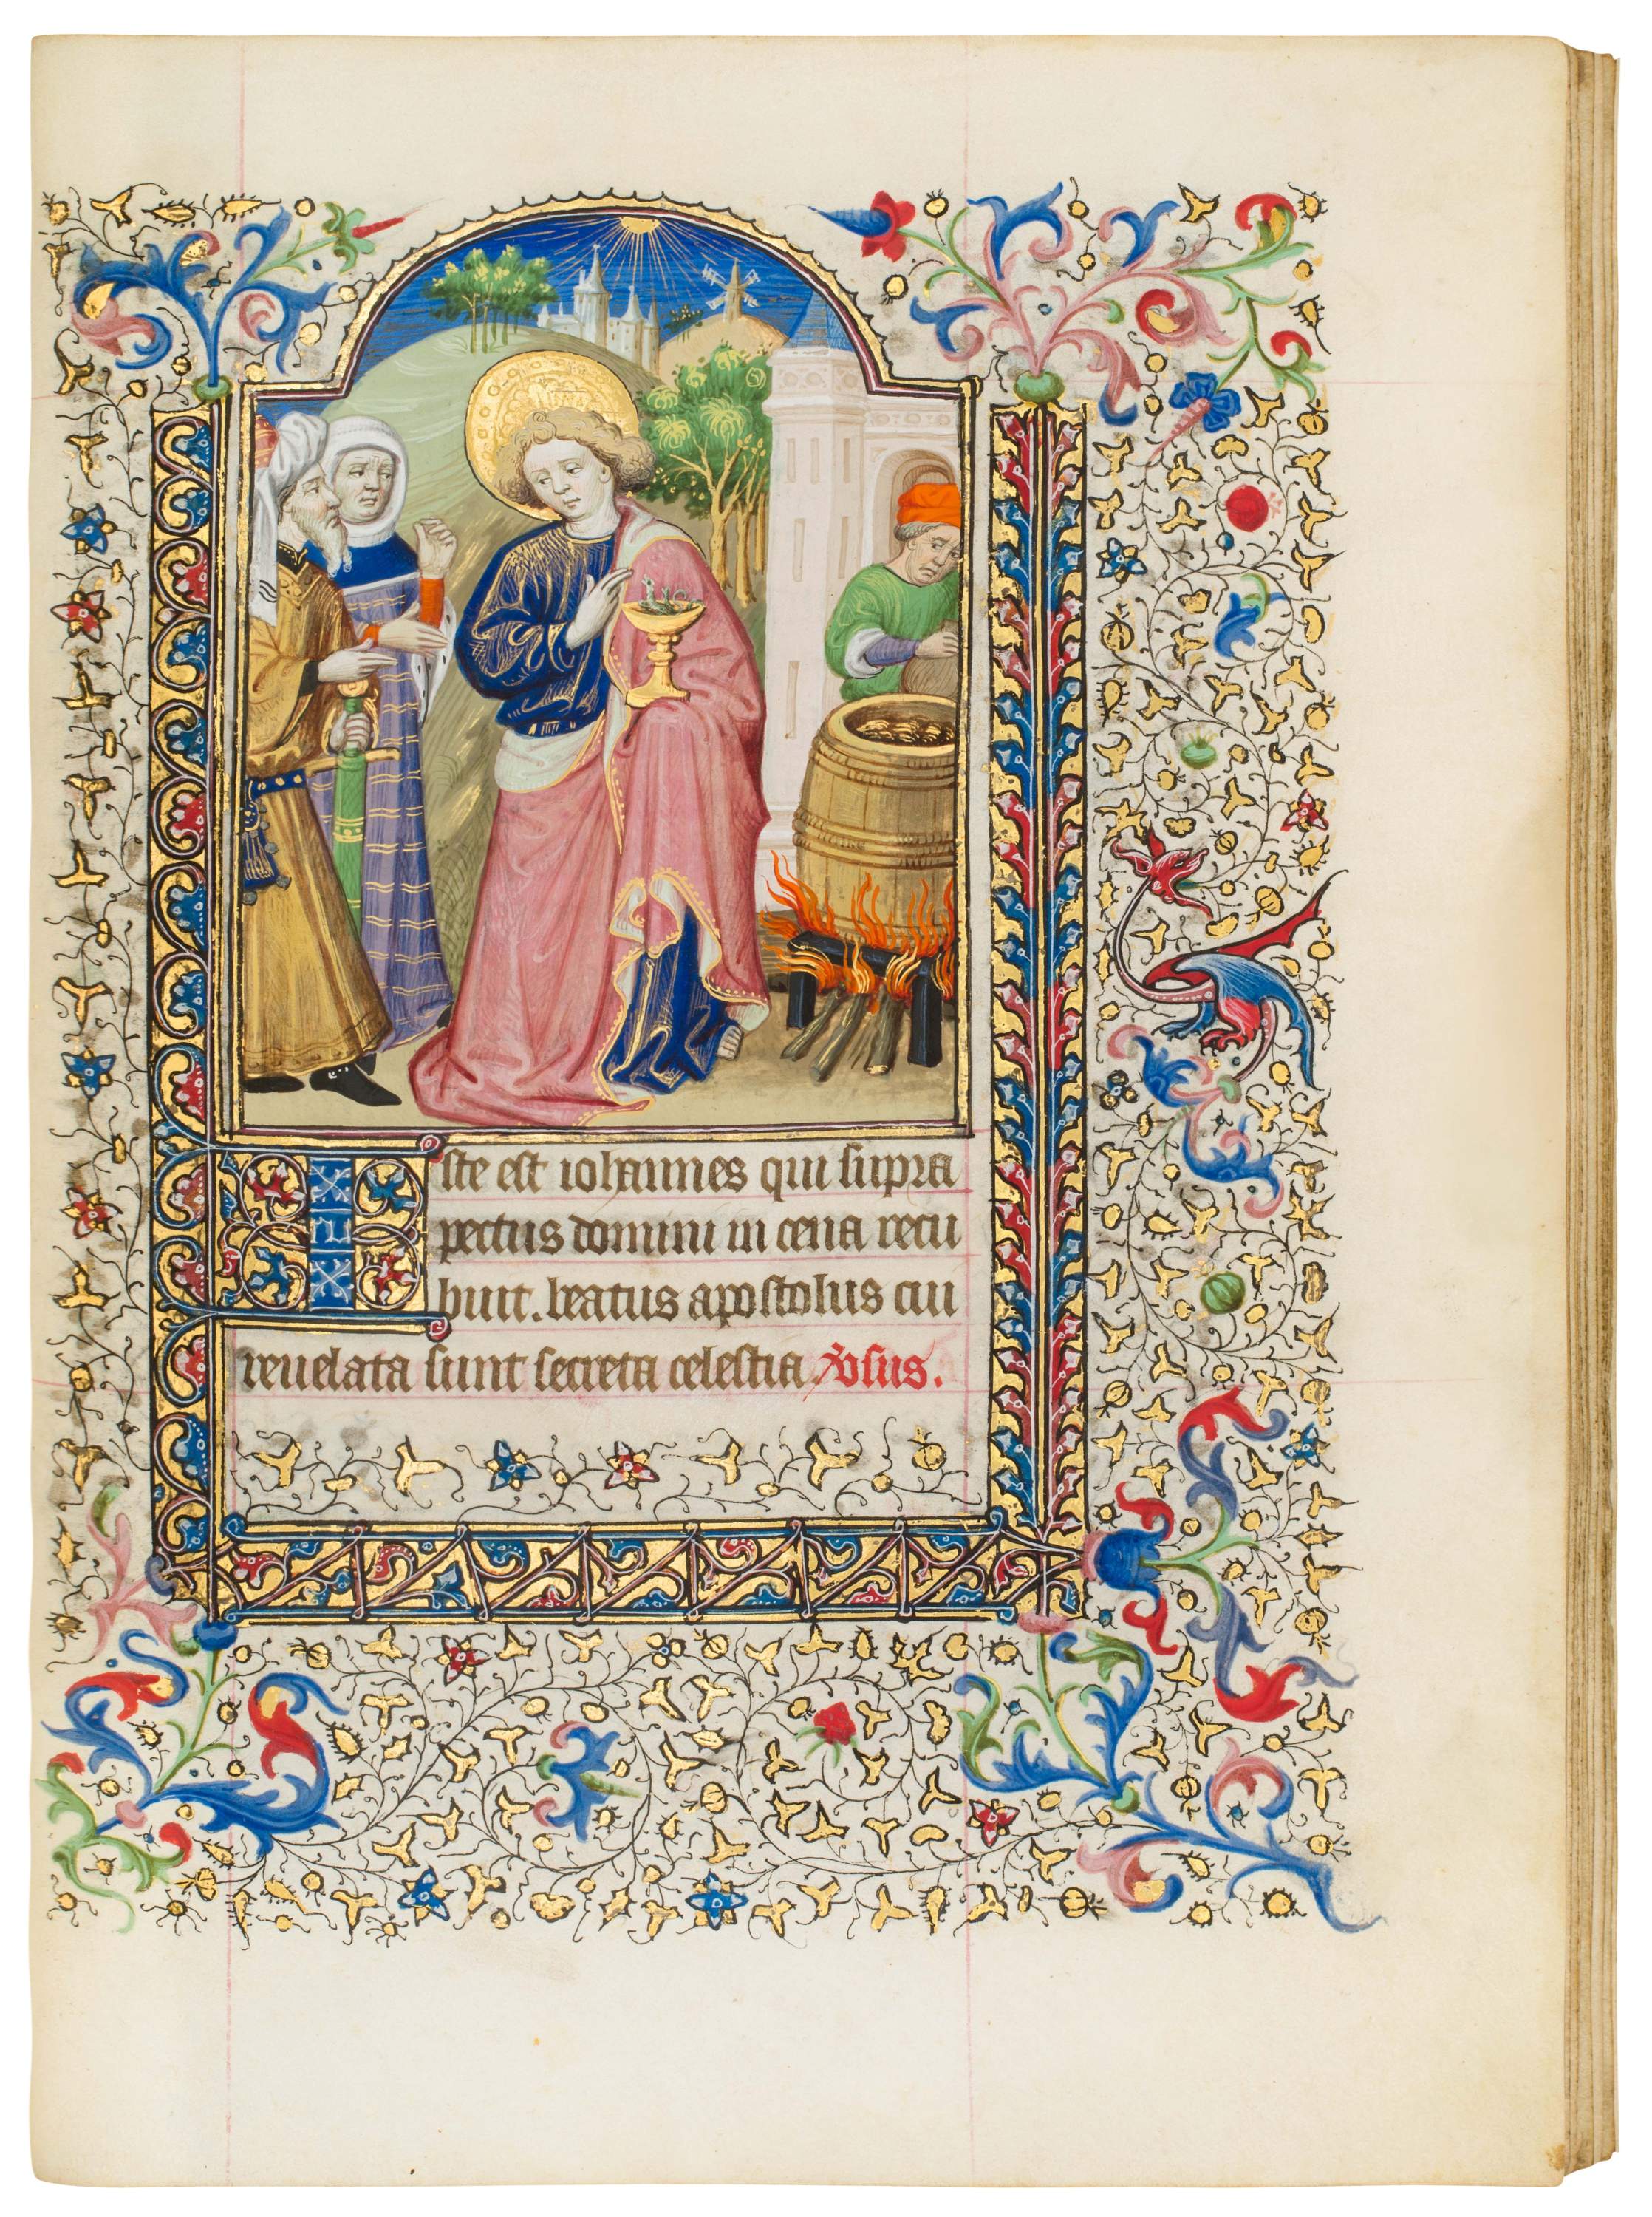 Iste est iohannes qui supra
pectus domini in cena recu
buit. beatus apostolus cui
reuelata sunt secreta celestia. v̉sus.